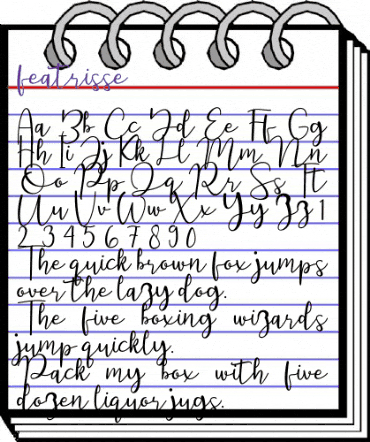 featrisse
Aa Bb Cc Dd Ee Ff Gg
Hh Ii Jj Kk Ll Mm Nn
Oo Pp Qq Rr Ss Tt
Uu Vv Ww Xx Yy Zz 1
2 3 4 5 6 7 8 9 0
The quick brown fox jumps
over the lazy dog.
The five boxing wizards
jump quickly.
Pack my box with five
dozen liquor jugs.